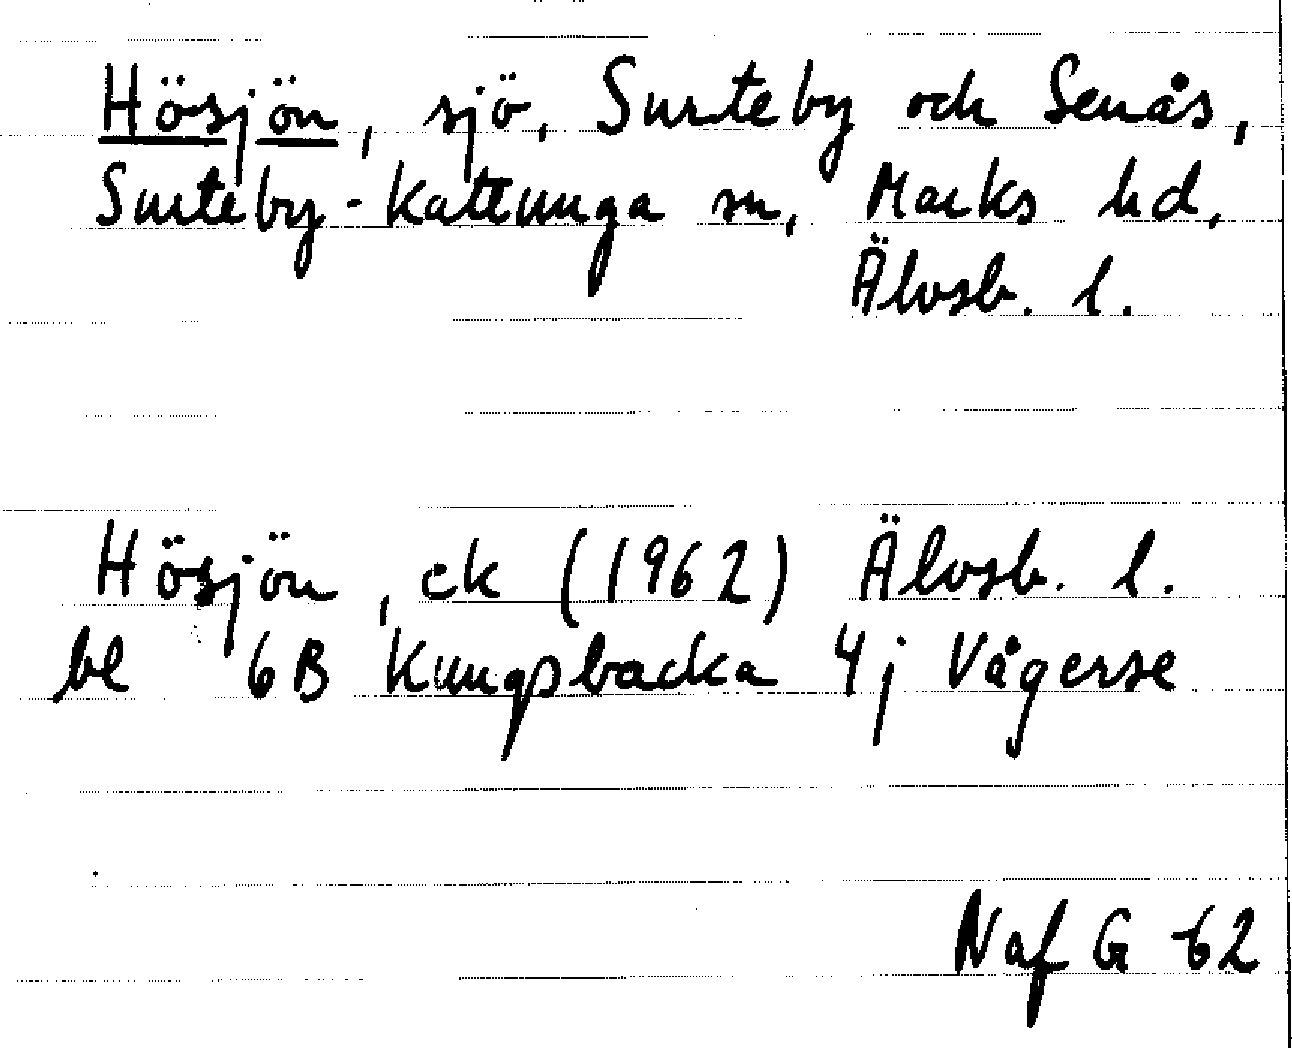 Hösjön, sjö, Surteby och Senås,
Surteby-Kattunga sn, Marks hd,
Älvsb. l.
Hösjön, ek (1962) Älvsb. l.
bl 6B Kungsbacka 4j Vågerse
Naf G -62